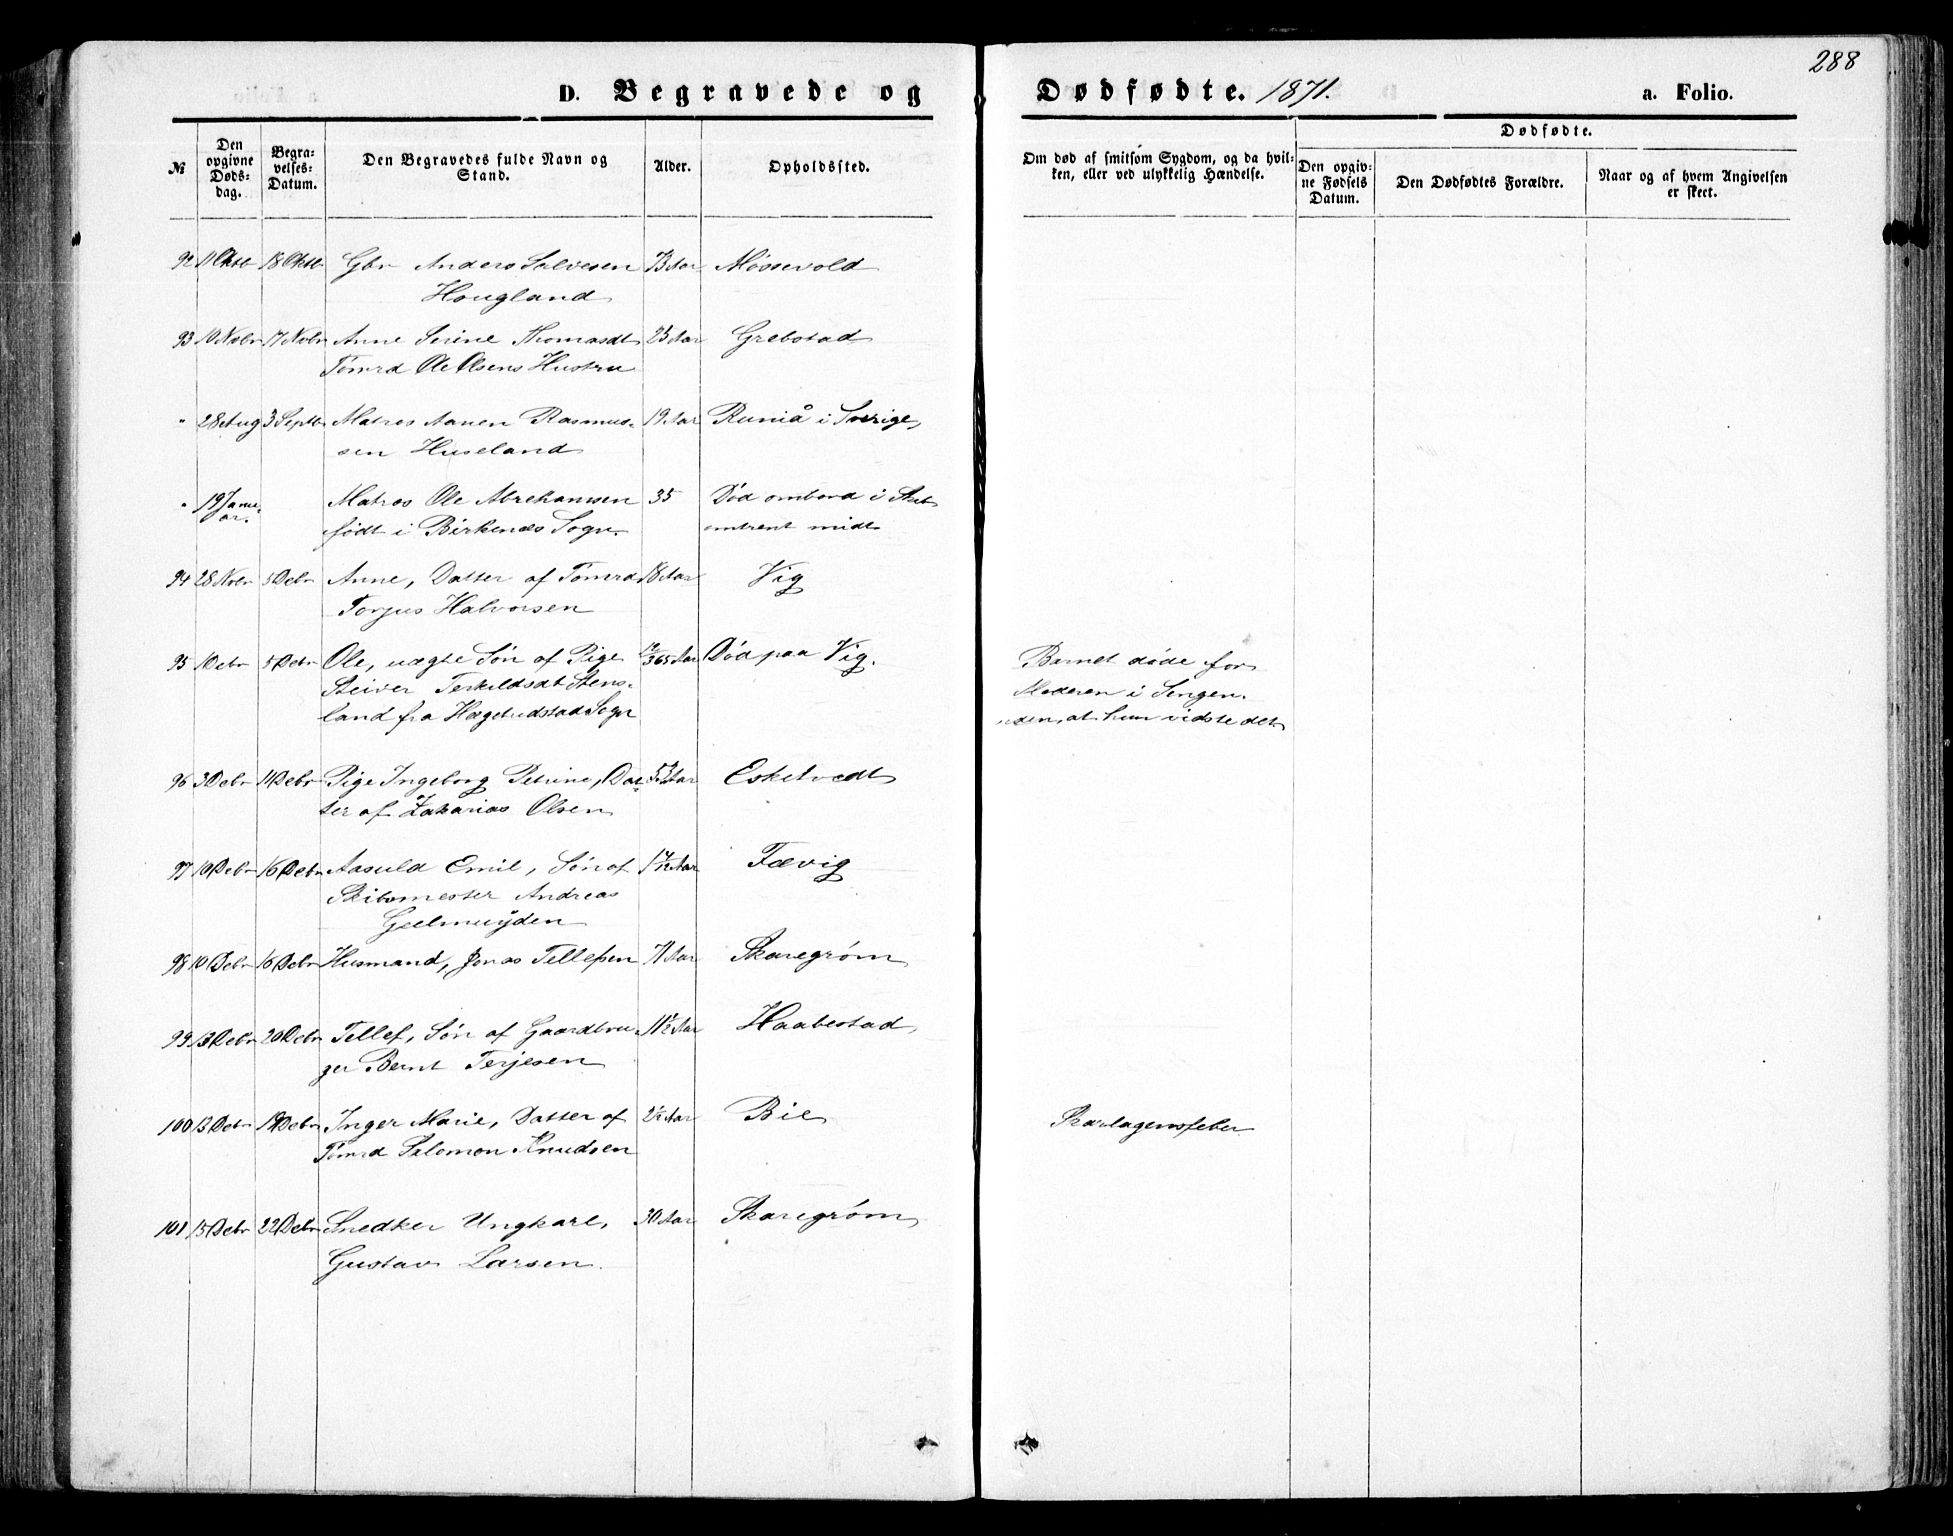 288
D. Begravede og Dødfødte. 1871. a. Folio.
№
Den opgivne Dødsdag.
Begravelses-Datum.
Den Begravedes fulde Navn og Stand.
Alder.
Opholdssted.
Om død af smitsom Sygdom, og da hvilken, eller ved ulykkelig Hændelse.
Dødfødte.
Den opgivne Fødsels Datum.
Den Dødfødtes Forældre.
Naar og af hvem Angivelsen er skeet.
92 11 Oktb 18 Oktb Gbr Anders Salvesen 73 Aar Møssevold
Hougland
93 10 Nvbr 17 Nvbr Anne Serine Thomasdt 25 Aar Grebstad
Tømrd Ole Olsens Hustru
" 28 Aug 3 Septb Matros Aanen Rasmus- 19 Aar Runiå i Sverige
sen Huseland
" 19 Janu- Matros Ole Abrehamsen 35 Død ombord i Skib
ar. født i Birkenæs Sogn. omtrent midt
94 28 Nvbr 5 Debr Anne, Datter af Tømrd 18 Aar Vig
Torjus Halvorsen
95 1 Debr 5 Debr Ole, uægte Søn af Pige 12/365 Aar Død paa Vig. Barnet døde for
Steiver Terkildsdt Stens- Moderen i Sengen.
land fra Hægebudstad Sogn uden, at hun vidste det
96 3 Debr 11 Debr Pige Ingeborg Petrine, Dat- Aar Eskelvedt
ter af Zakarias Olsen
97 10 Debr 16 Debr Aasuld Emil, Søn af Aar Fævig
Skibsmester Andreas
Geelmuijden
98 10 Debr 16 Debr Husmand, Jonas Tellefsen 71 Aar Skaregrøm
99 13 Debr 20 Debr Tellef, Søn af Gaardbru- 11 1/2 Aar Haabestad
ger Bernt Terjesen
100 13 Debr 19 Debr Inger Marie, Datter af 2 1/2 Aar Bie Skarlagensfeber
Tømrd Salomon Knudsen
101 15 Debr 22 Debr Snedker Ungkarl, 30 Aar Skaregrøm
Gustav Larsen.